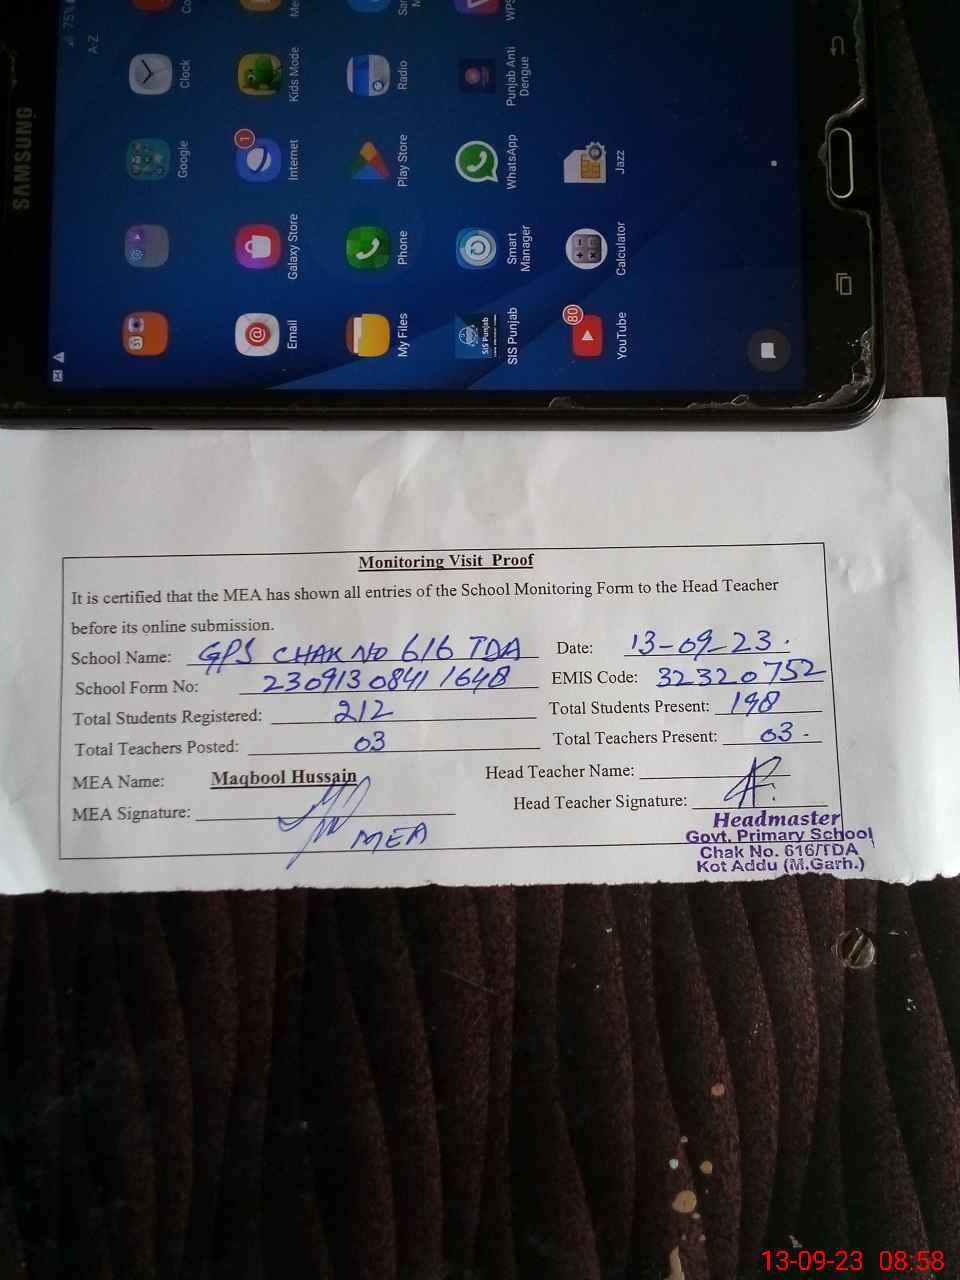 SAMSUNG
751
A-Z
Clock
Kids Mode
Radio
Punjab Anti Dengue
Google
Internet
1
Play Store
WhatsApp
Jazz
Galaxy Store
Phone
Smart Manager
Calculator
31
Email
My Files
SIS Punjab
SIS Punjab
YouTube
80
Monitoring Visit Proof
It is certified that the MEA has shown all entries of the School Monitoring Form to the Head Teacher
before its online submission.
School Name: GPS CHAK NO 616 TDA Date: 13-09-23.
School Form No: 23091308411648 EMIS Code: 32320752
Total Students Registered: 212 Total Students Present: 198
Total Teachers Posted: 03 Total Teachers Present: 03.
MEA Name: Maqbool Hussain Head Teacher Name:
MEA Signature: Head Teacher Signature:
MEA
Headmaster
Govt. Primary School
Chak No. 616/TDA
Kot Addu (M.Garh.)
13-09-23 08:58